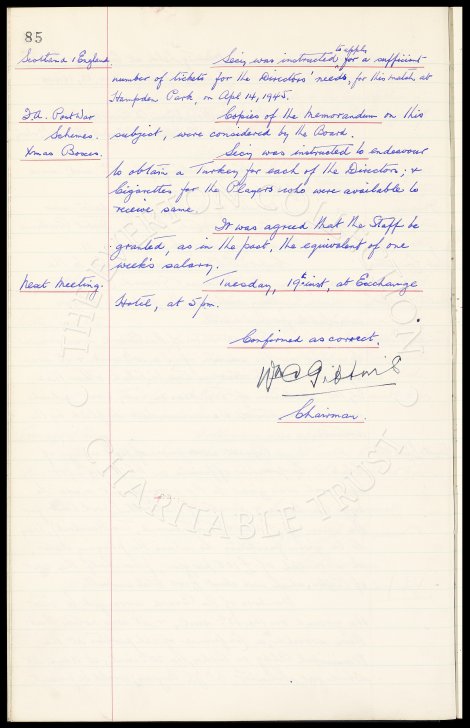 85
Scotland v England. Secy was instructed to apply for a sufficient
number of tickets for the Directors' needs, for this match at
Hampden Park, on Apl 14, 1945.
F.A. Post War Copies of the Memorandum on this
Schemes. subject, were considered by the Board.
Xmas Boxes. Secy was instructed to endeavour
to obtain a Turkey for each of the Directors; &
Cigarettes for the Players who were available to
receive same.
It was agreed that the Staff be
granted, as in the past, the equivalent of one
week's salary.
Next Meeting. Tuesday, 19th inst, at Exchange
Hotel, at 5pm.
Confirmed as correct.
Wm C Gibbins
Chairman.
THE EVERTON COLLECTION
CHARITABLE TRUST